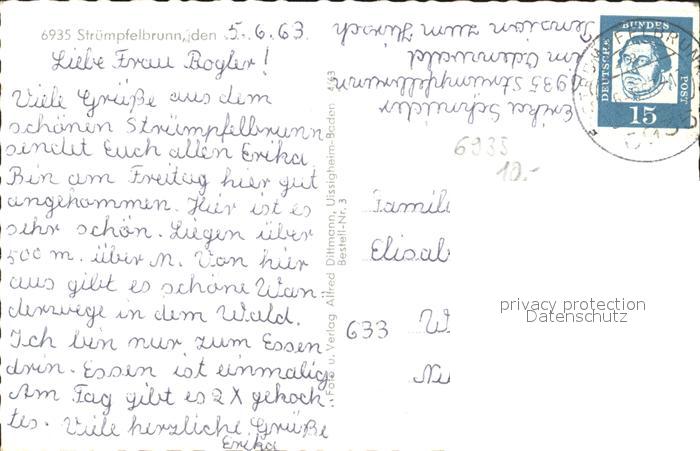 6935 Strümpfelbrunn, den 5.6.63.
Liebe Frau Bogler!
Viele Grüße aus dem
schönen Strümpfelbrunn
sendet Euch allen Erika
Bin am Freitag hier gut
angehommen. Hier ist es
sehr schön. Liegen über
500 m. über N. Von hier
aus gibt es schöne Wan-
derwege in dem Wald.
Ich bin nur zum Essen
drin. Essen ist einmalig
Am Tag gibt es 2 X gekoch
tes. Viele herzliche Grüße
Erika
Foto u. Verlag Alfred Dittmann, Uissigheim-Baden 4/63
Bestell-Nr. 3
Erika Schnider
6935 Strümpfelbrunn
im Odenwald
Pension zum Hirsch
DEUTSCHE BUNDES POST
15
6935
10.-
Famil
Elisab
633 W
privacy protection
Datenschutz